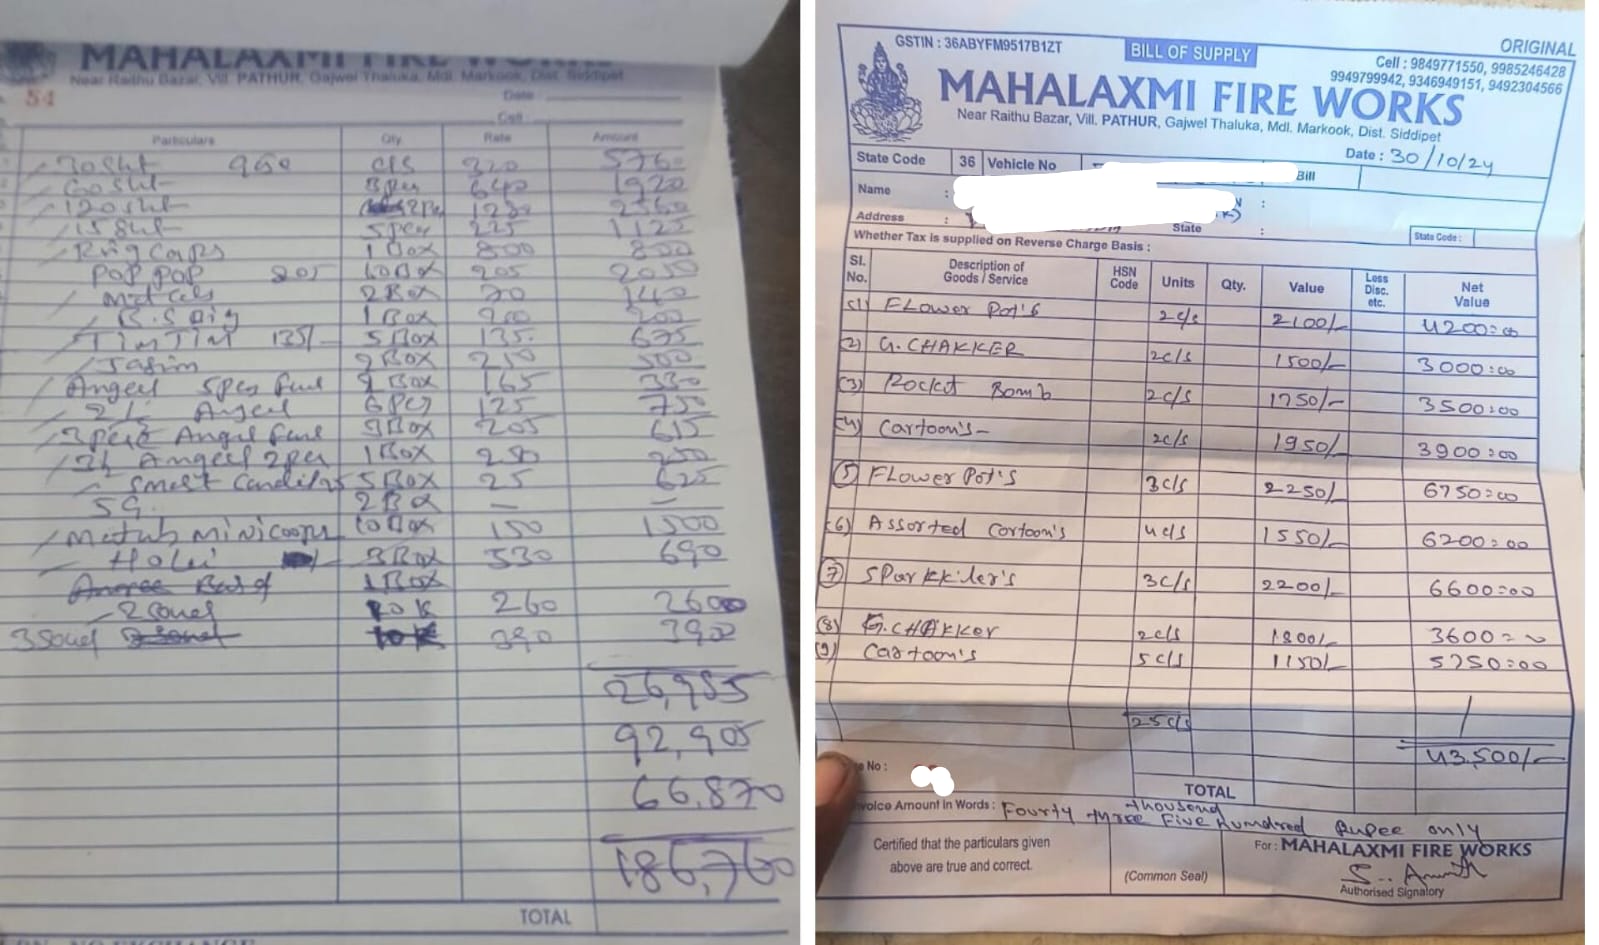 MAHALAXMI FIRE WORKS
Near Raithu Bazar, Vill. PATHUR, Gajwel Thaluka, Mdl. Markook, Dist. Siddipet
54
Date :
Cell :
Particulars Qty Rate Amount
30Sht 960 C/S 320 5760
60Sht 3Pcs 640 1920
120Sht 2Pc 1280 2560
15Sht 5Pcs 225 1125
Ring Caps 1 Box 800 800
POP POP 205 10Box 205 2050
2Box 70 140
1Box 200 200
TimTim 135/- 5Box 135 675
2Box 250 500
Angeel 5pcs 2Box 165 330
Angeel 6Pcs 125 750
3pcs Angel 3Box 205 615
Angeel 2per 1Box 250 250
5Box 25 625
5G. 2Box — —
10Box 150 1500
Holi 3Box 530 690
1Box
2Souel 10K 260 2600
3Souel 10K 390 3900
26,985
92,905
66,870
186,760
TOTAL
GSTIN : 36ABYFM9517B1ZT
BILL OF SUPPLY
ORIGINAL
Cell : 9849771550, 9985246428
9949799942, 9346949151, 9492304566
MAHALAXMI FIRE WORKS
Near Raithu Bazar, Vill. PATHUR, Gajwel Thaluka, Mdl. Markook, Dist. Siddipet
Date : 30/10/24
State Code 36 Vehicle No Bill
Name :
Address : State :
State Code :
Whether Tax is supplied on Reverse Charge Basis :
Sl. No. Description of Goods / Service HSN Code Units Qty. Value Less Disc. etc. Net Value
(1) FLower Pot's 2 c/s 2100/- 4200=00
(2) G.CHAKKER 2c/s 1500/- 3000=00
(3) Rocket Bomb 2 c/s 1750/- 3500=00
(4) Cartoon's - 2c/s 1950/- 3900=00
(5) FLower Pot's 3 c/s 2250/- 6750=00
(6) Assorted Cortoon's 4 c/s 1550/- 6200=00
(7) SParkk'ler's 3 c/s 2200/- 6600=00
(8) G.CHAKKer 2c/s 1800/- 3600=00
(9) Cartoon's 5 c/s 1150/- 5750=00
25 c/s
43,500/-
No :
TOTAL
Invoice Amount in Words : Fourty three thousand Five Humdred Rupee only
Certified that the particulars given
above are true and correct.
(Common Seal)
For : MAHALAXMI FIRE WORKS
Authorised Signatory